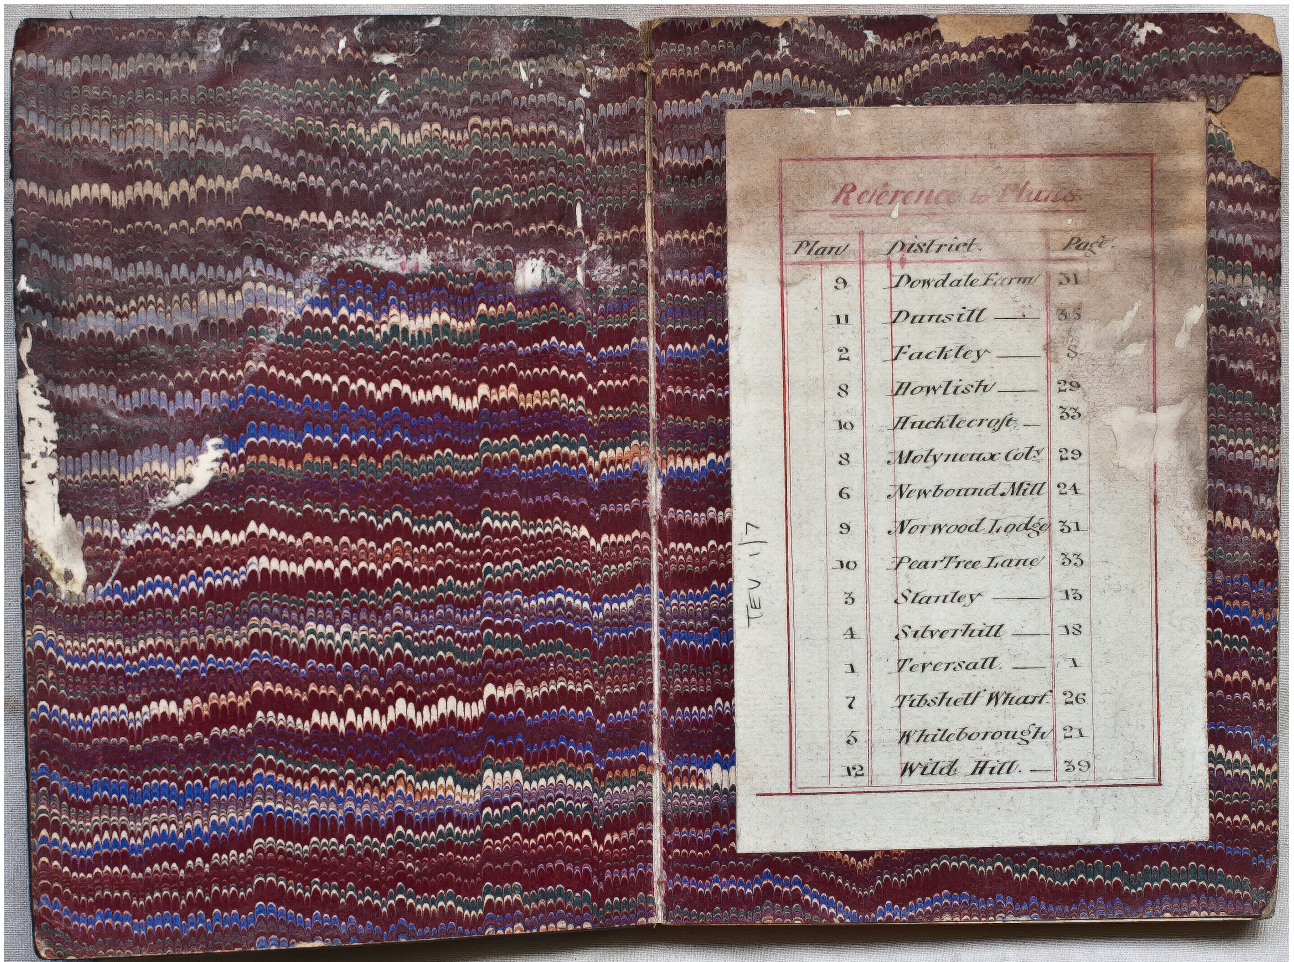 Reference to Plans
Plan District. Page.
9 Dowdale Farm 31
11 Dunsill — 35
2 Fackley — 5
8 Howlish — 29
10 Hucklecroft — 33
8 Molyneux Coty 29
6 Newbound Mill 24
9 Norwood Lodge 31
10 Pear Tree Lane 33
3 Stanley — 13
4 Silverhill — 18
1 Teversall — 1
7 Tibshelf Wharf 26
5 Whileborough 21
12 Wild Hill. — 39
TEV 1/7